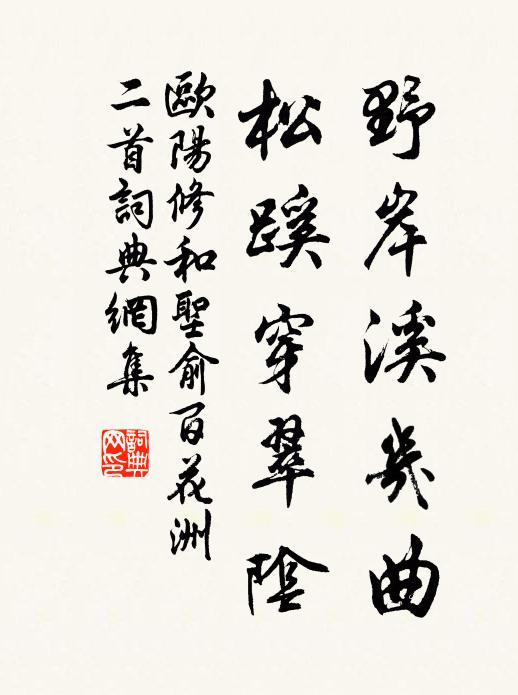 野岸溪幾曲
松蹊穿翠陰
歐陽修和聖俞百花洲
二首詞典網集
詞典网印